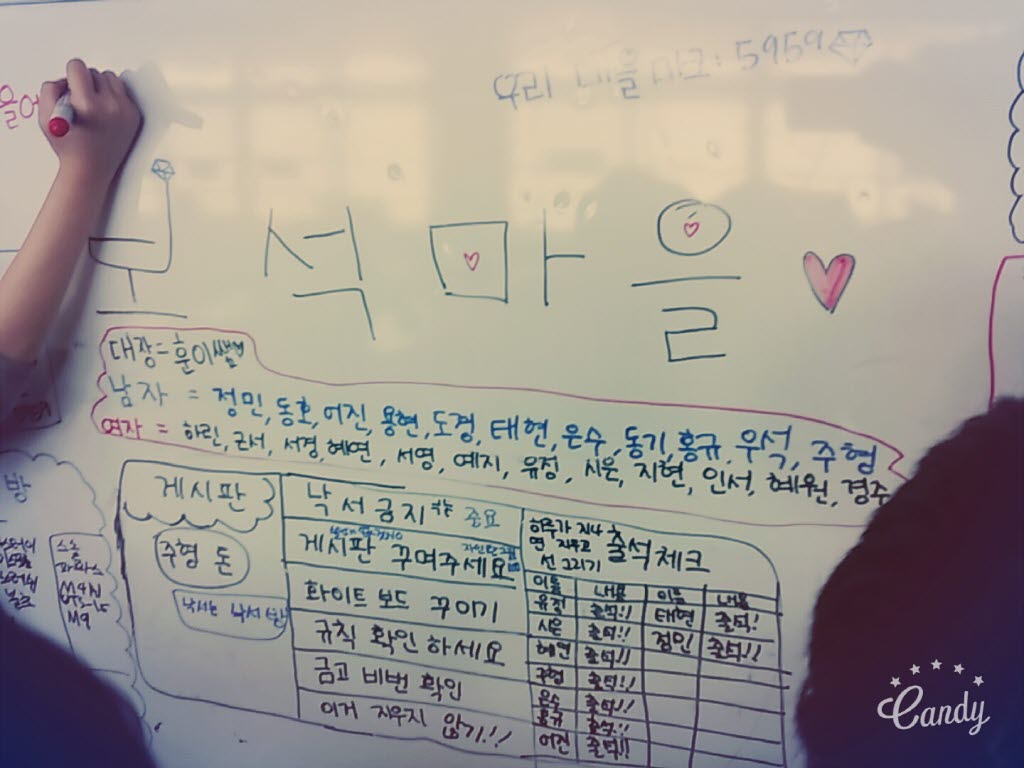 우리 마을 마크: 5959
을어
보석마을
대장=훈이쌤
남자 = 정민, 동호, 어진, 용현, 도경, 태현, 은수, 동기, 홍규, 우석, 주형
여자 = 하린, 군서, 서경, 혜연, 서영, 예지, 유정, 시은, 지현, 인서, 혜원, 경주
게시판
주형 돈
낙서는 낙서
낙서금지 중요
게시판 꾸며주세요
화이트 보드 꾸이기
규칙 확인 하세요
금고 비번 확인
이거 지우지 않기!!
하루가 지나
면 지우고 출석체크
선 그리기
이름 내용 이름 내용
유진 출석!! 태현 출석!
시은 출석!! 정민 출석!!
혜연 출석!!
주형 출석!!
은수 출석!!
홍규 출석!!
어진 출석!!
방
스농
M4N
M9
Candy